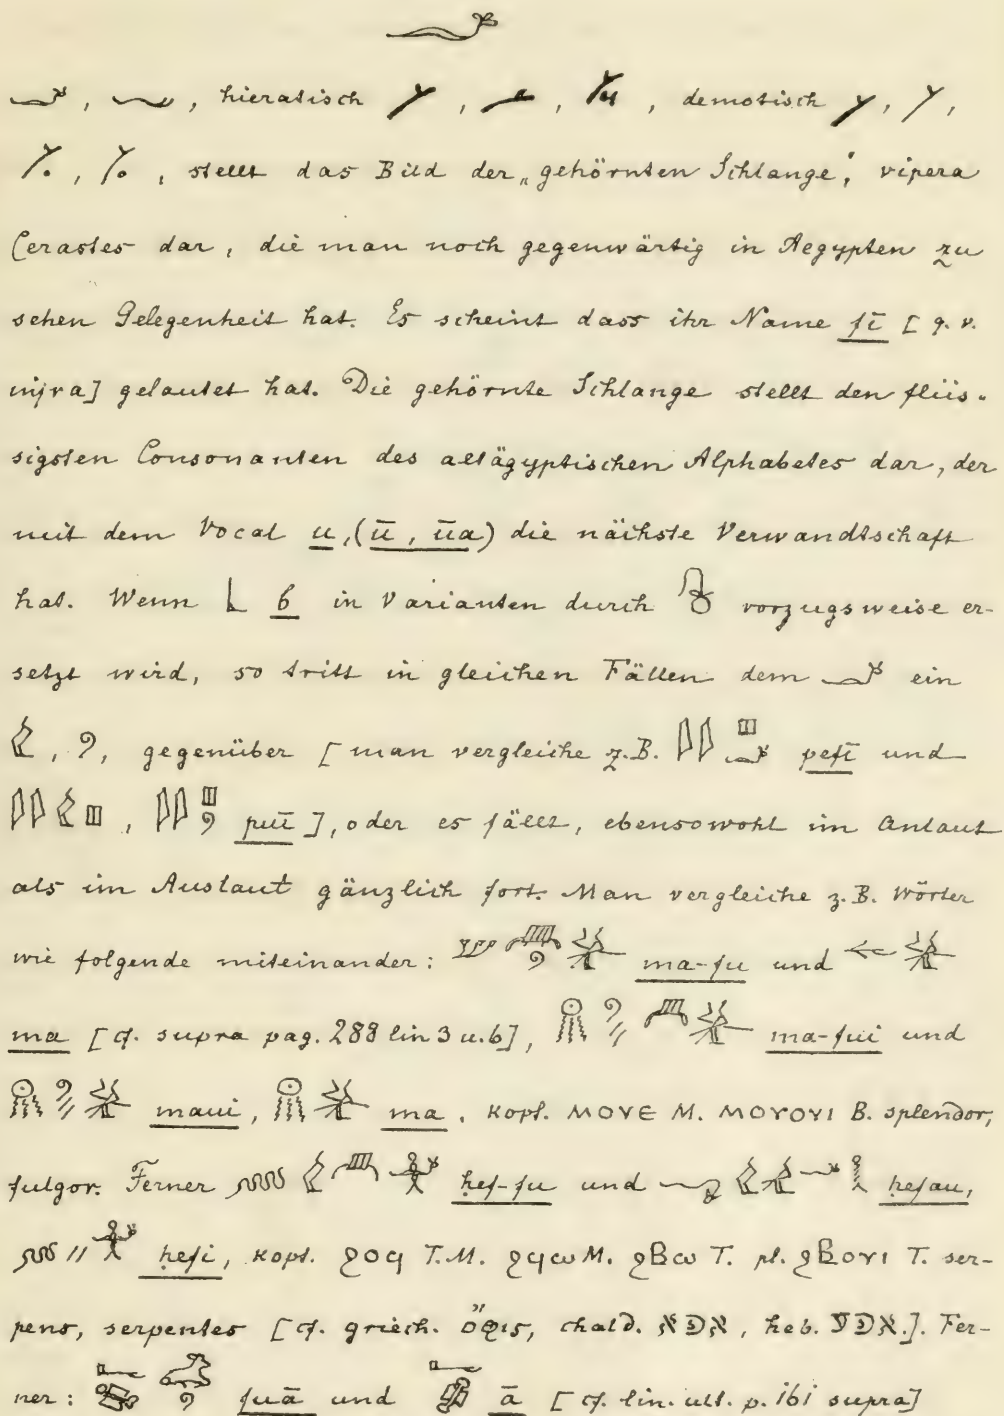 𓆑
𓆑, 𓆑, hieratisch , , , demotisch , ,
, , stellt das Bild der „gehörnten Schlange“, vipera
Cerastes dar, die man noch gegenwärtig in Aegypten zu
sehen Gelegenheit hat. Es scheint dass ihr Name fī [q. v.
infra] gelautet hat. Die gehörnte Schlange stellt den flüs-
sigsten Consonanten des altägyptischen Alphabetes dar, der
mit dem Vocal u, (ū, ūa) die nächste Verwandtschaft
hat. Wenn 𓃀 b in Varianten durch vorzugsweise er-
setzt wird, so tritt in gleichen Fällen dem 𓆑 ein
𓅱, 𓏲, gegenüber [man vergleiche z.B. 𓇋𓇋𓊪𓆑 pefī und
𓇋𓇋𓅱𓊪, 𓇋𓇋𓊪𓏲 puī], oder es fällt, ebensowohl im Anlaut
als im Auslaut gänzlich fort. Man vergleiche z.B. Wörter
wie folgende miteinander: ma-fu und
ma [cf. supra pag. 288 lin 3 u. 6], ma-fui und
maui, ma, kopt. ⲙⲟⲩⲉ M. ⲙⲟⲩⲟⲩⲓ B. splendor,
fulgor. Ferner ḥef-fu und ḥefau,
ḥefi, kopt. ϩⲟϥ T.M. ϩϥⲱ M. ϩⲃⲱ T. pl. ϩⲃⲟⲩⲓ T. ser-
pens, serpentes [cf. griech. ὄφις, chald. אפא, heb. אפע.]. Fer-
ner: fuā und ā [cf. lin. ult. p. 161 supra]